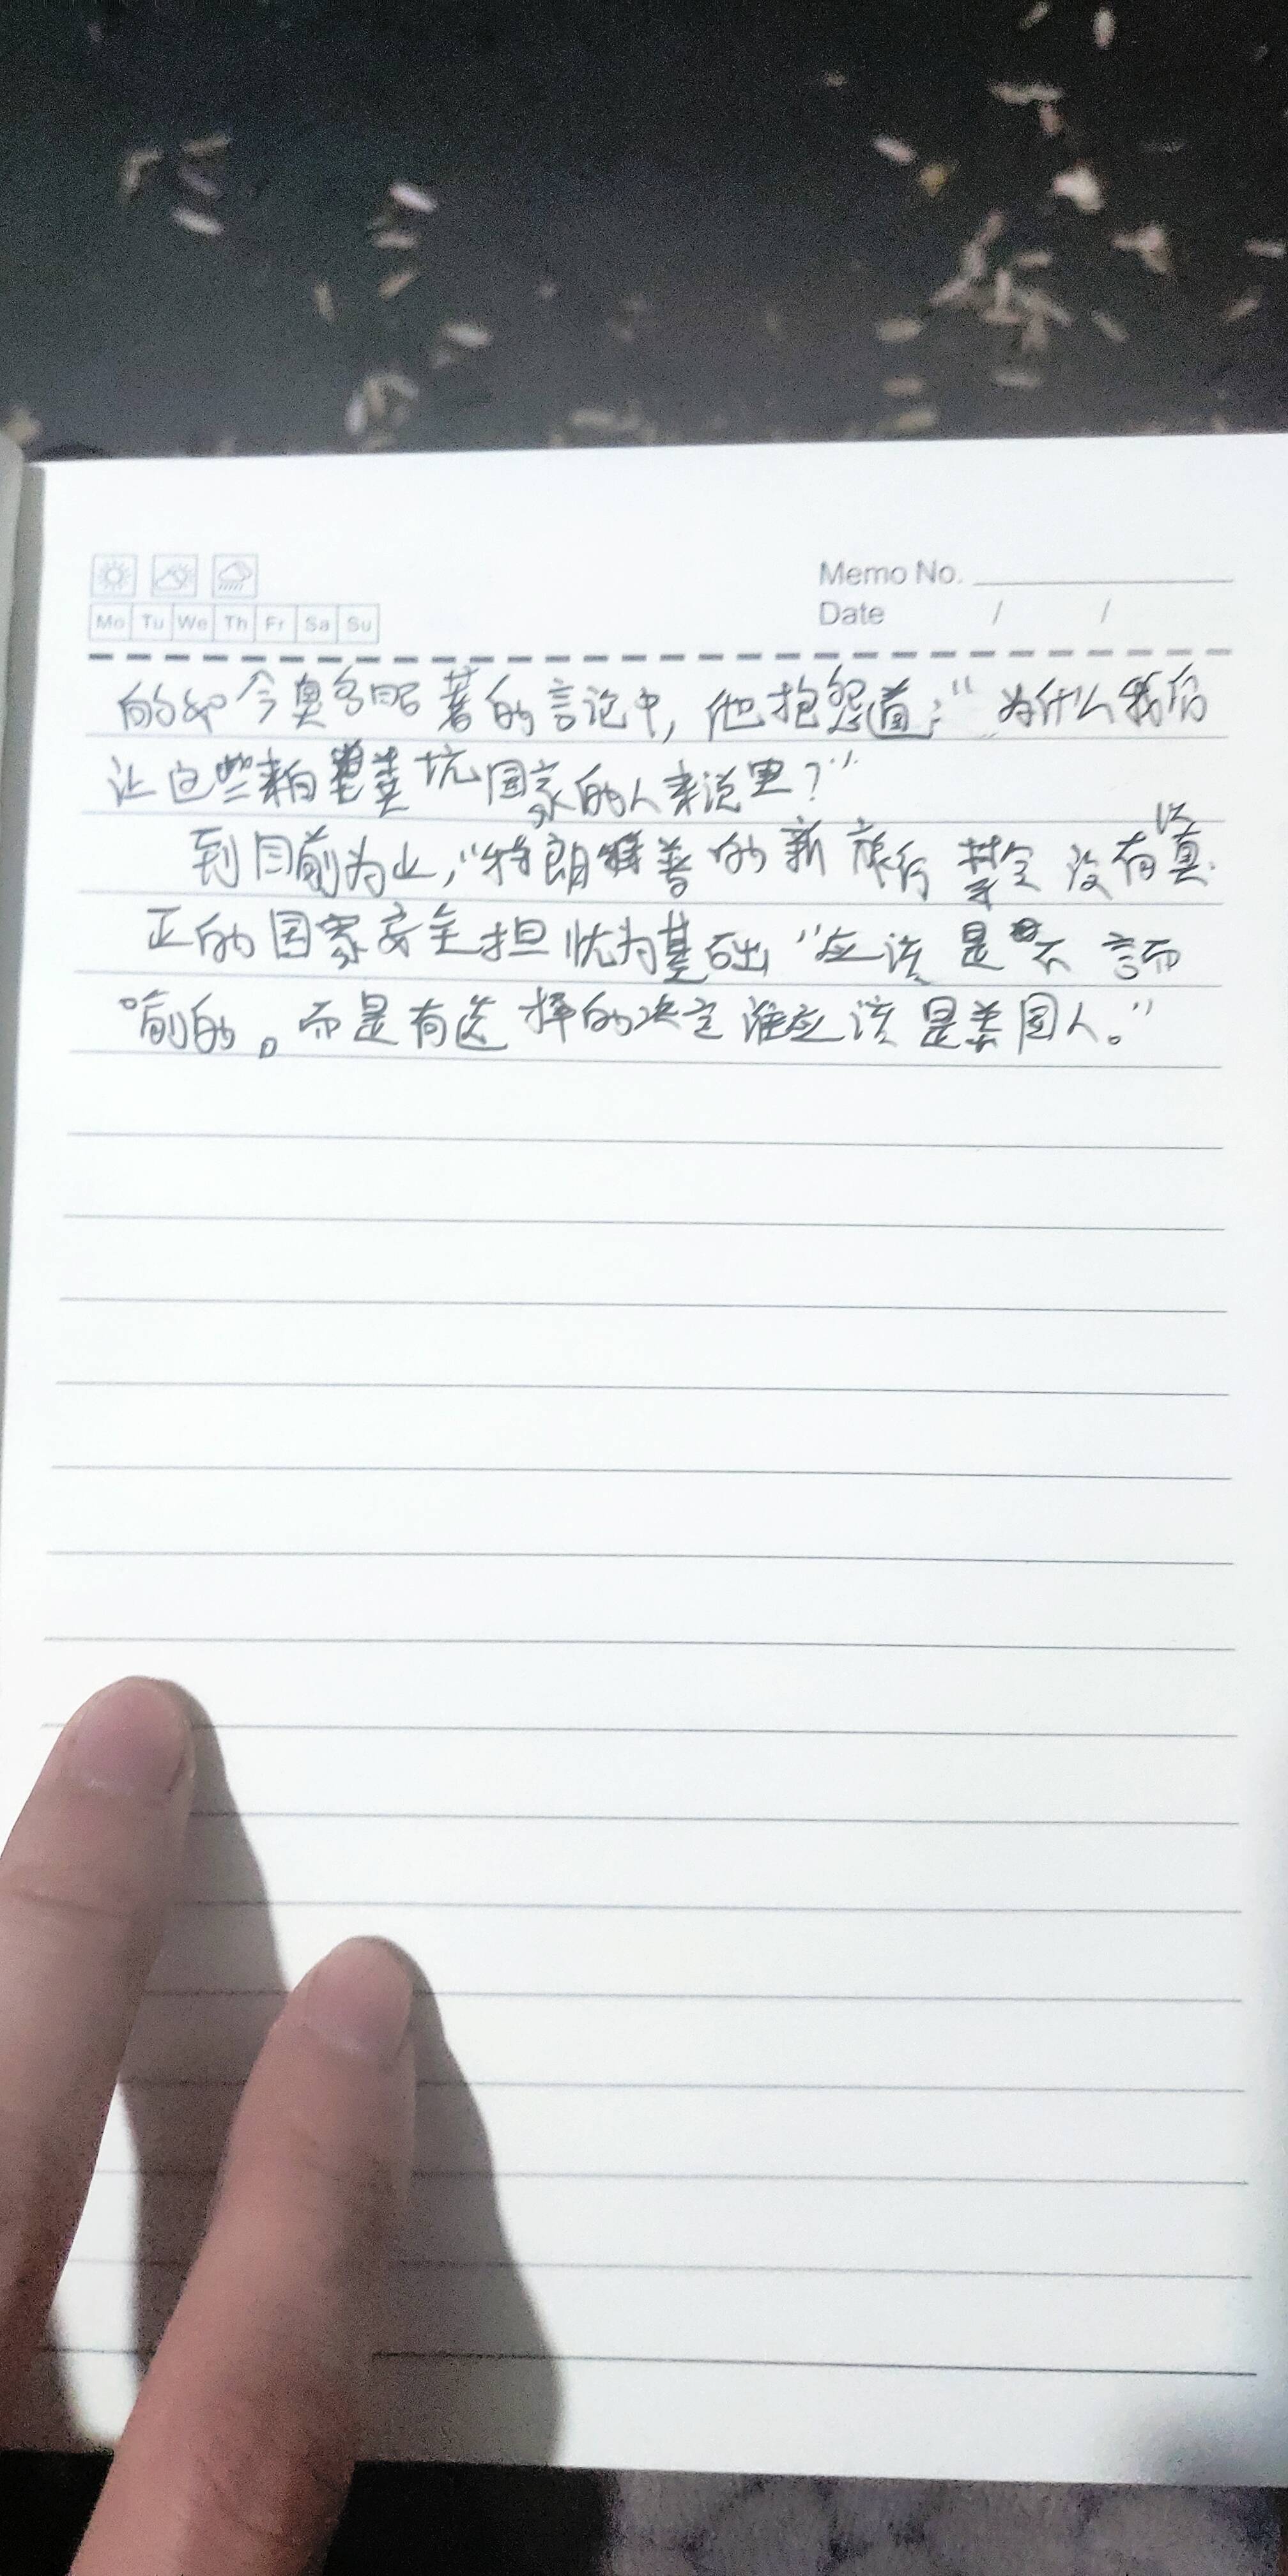 Memo No.
Mo Tu We Th Fr Sa Su
Date / /
的如今臭名昭著的言论中,他抱怨道:“为什么我们
让这些来自粪坑国家的人来这里?”
到目前为止,“特朗普的新旅行禁令没有以真
正的国家安全担忧为基础“应该是不言而
喻的。而是有选择的决定谁应该是美国人。”